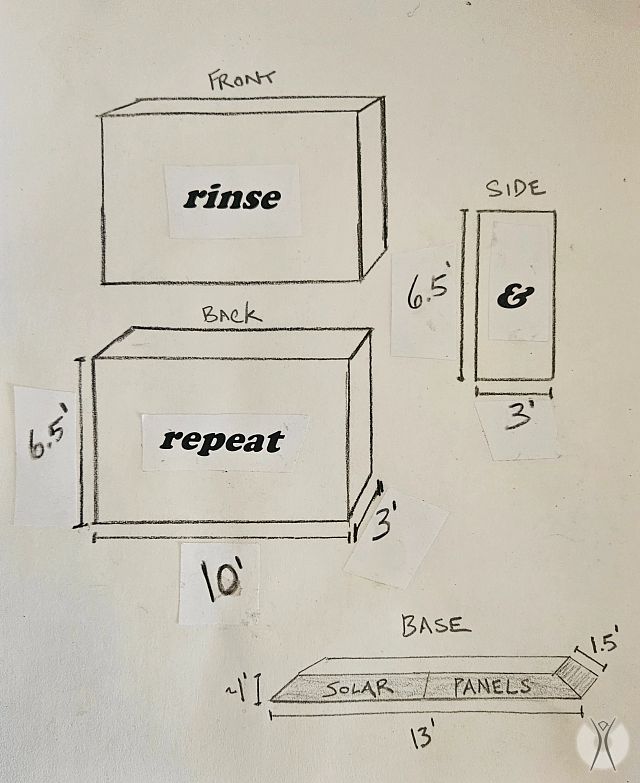 FRONT
rinse
SIDE
6.5'
&
3'
BACK
6.5'
repeat
3'
10'
BASE
1.5'
~1'
SOLAR PANELS
13'